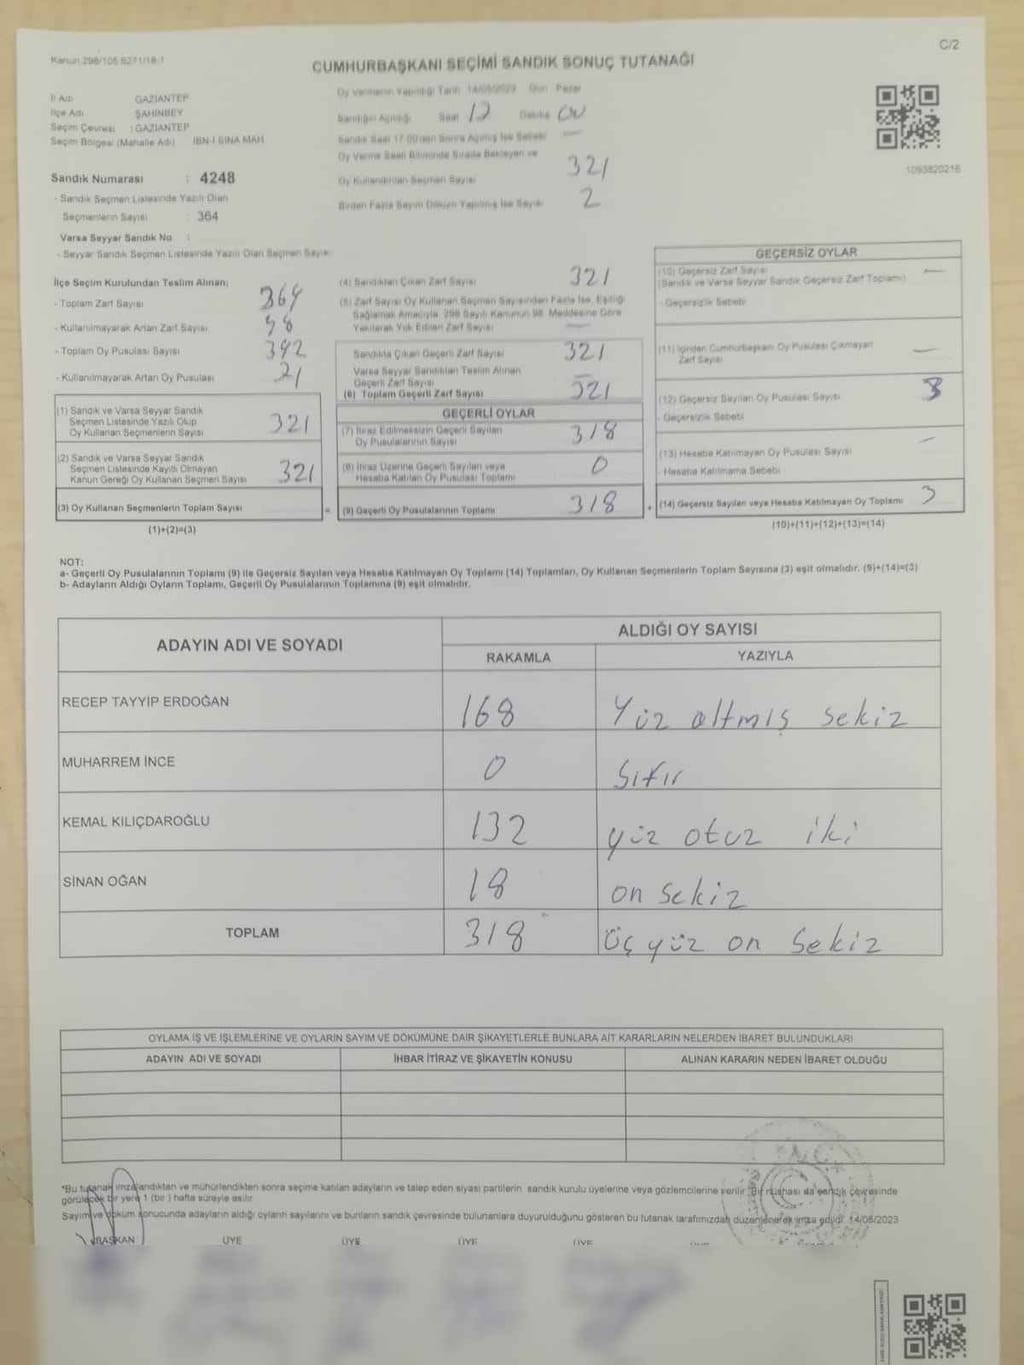 Kanun 298/105 6271/18-1
C/2
CUMHURBAŞKANI SEÇİMİ SANDIK SONUÇ TUTANAĞI
İl Adı GAZİANTEP
İlçe Adı ŞAHİNBEY
Seçim Çevresi : GAZİANTEP
Seçim Bölgesi (Mahalle Adı) İBN-İ SİNA MAH.
Oy Vermenin Yapıldığı Tarih 14/05/2023 Gün Pazar
Sandığın Açıldığı Saat 17 Dakika 00
Sandık Saat 17.00'den Sonra Açılmış İse Sebebi —
Oy Verme Saati Bitiminde Sırada Bekleyen ve
Oy Kullandırılan Seçmen Sayısı 321
Birden Fazla Sayım Döküm Yapılmış İse Sayısı 2
1093820216
Sandık Numarası : 4248
- Sandık Seçmen Listesinde Yazılı Olan
Seçmenlerin Sayısı : 364
Varsa Seyyar Sandık No :
- Seyyar Sandık Seçmen Listesinde Yazılı Olan Seçmen Sayısı:
İlçe Seçim Kurulundan Teslim Alınan;
- Toplam Zarf Sayısı 364
- Kullanılmayarak Artan Zarf Sayısı
- Toplam Oy Pusulası Sayısı 392
- Kullanılmayarak Artan Oy Pusulası
(1) Sandık ve Varsa Seyyar Sandık
Seçmen Listesinde Yazılı Olup
Oy Kullanan Seçmenlerin Sayısı 321
(2) Sandık ve Varsa Seyyar Sandık
Seçmen Listesinde Kayıtlı Olmayan
Kanun Gereği Oy Kullanan Seçmen Sayısı 321
(3) Oy Kullanan Seçmenlerin Toplam Sayısı
(1)+(2)=(3)
(4) Sandıktan Çıkan Zarf Sayısı 321
(5) Zarf Sayısı Oy Kullanan Seçmen Sayısından Fazla İse, Eşitliği
Sağlamak Amacıyla, 298 Sayılı Kanunun 98. Maddesine Göre
Yakılarak Yok Edilen Zarf Sayısı —
Sandıkta Çıkan Geçerli Zarf Sayısı 321
Varsa Seyyar Sandıktan Teslim Alınan
Geçerli Zarf Sayısı —
(6) Toplam Geçerli Zarf Sayısı 321
GEÇERLİ OYLAR
(7) İtiraz Edilmeksizin Geçerli Sayılan
Oy Pusulalarının Sayısı 318
(8) İtiraz Üzerine Geçerli Sayılan veya
Hesaba Katılan Oy Pusulası Toplamı 0
= (9) Geçerli Oy Pusulalarının Toplamı 318
GEÇERSİZ OYLAR
(10) Geçersiz Zarf Sayısı —
(Sandık ve Varsa Seyyar Sandık Geçersiz Zarf Toplamı)
- Geçersizlik Sebebi
(11) İçinden Cumhurbaşkanı Oy Pusulası Çıkmayan
Zarf Sayısı —
(12) Geçersiz Sayılan Oy Pusulası Sayısı 3
- Geçersizlik Sebebi
(13) Hesaba Katılmayan Oy Pusulası Sayısı —
- Hesaba Katılmama Sebebi
+ (14) Geçersiz Sayılan veya Hesaba Katılmayan Oy Toplamı 3
(10)+(11)+(12)+(13)=(14)
NOT:
a- Geçerli Oy Pusulalarının Toplamı (9) ile Geçersiz Sayılan veya Hesaba Katılmayan Oy Toplamı (14) Toplamları, Oy Kullanan Seçmenlerin Toplam Sayısına (3) eşit olmalıdır. (9)+(14)=(3)
b- Adayların Aldığı Oyların Toplamı, Geçerli Oy Pusulalarının Toplamına (9) eşit olmalıdır.
ADAYIN ADI VE SOYADI
ALDIĞI OY SAYISI
RAKAMLA YAZIYLA
RECEP TAYYİP ERDOĞAN 168 Yüz altmış sekiz
MUHARREM İNCE 0 Sıfır
KEMAL KILIÇDAROĞLU 132 yüz otuz iki
SİNAN OĞAN 18 on sekiz
TOPLAM 318 Üç yüz on sekiz
OYLAMA İŞ VE İŞLEMLERİNE VE OYLARIN SAYIM VE DÖKÜMÜNE DAİR ŞİKAYETLERLE BUNLARA AİT KARARLARIN NELERDEN İBARET BULUNDUKLARI
ADAYIN ADI VE SOYADI İHBAR İTİRAZ VE ŞİKAYETİN KONUSU ALINAN KARARIN NEDEN İBARET OLDUĞU
*Bu tutanak imzalandıktan ve mühürlendikten sonra seçime katılan adayların ve talep eden siyasi partilerin sandık kurulu üyelerine veya gözlemcilerine verilir. Bir nüshası da sandık çevresinde
görülecek bir yere 1 (bir) hafta süreyle asılır
Sayım ve döküm sonucunda adayların aldığı oyların sayılarını ve bunların sandık çevresinde bulunanlara duyurulduğunu gösteren bu tutanak tarafımızdan düzenlenerek imza edildi. 14/05/2023
BAŞKAN ÜYE ÜYE ÜYE ÜYE
T.C.